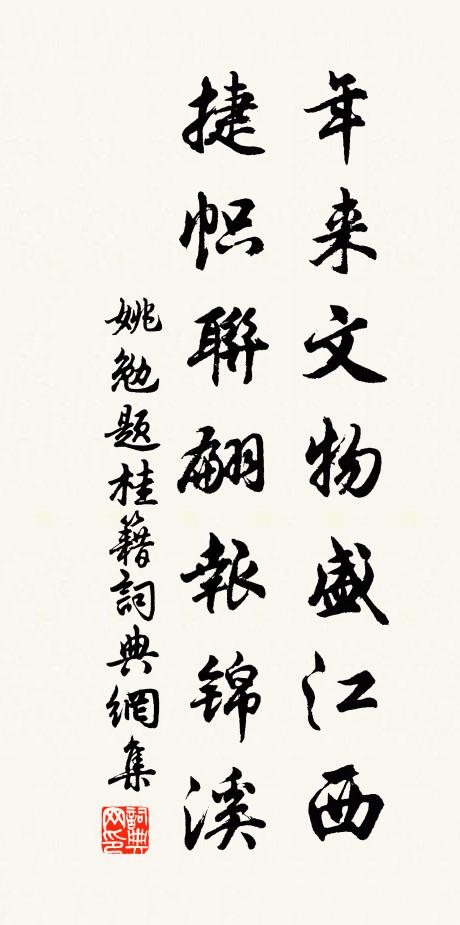 年来文物盛江西
捷帜聯翩報锦溪
姚勉题桂籍詞典網集
詞典网印